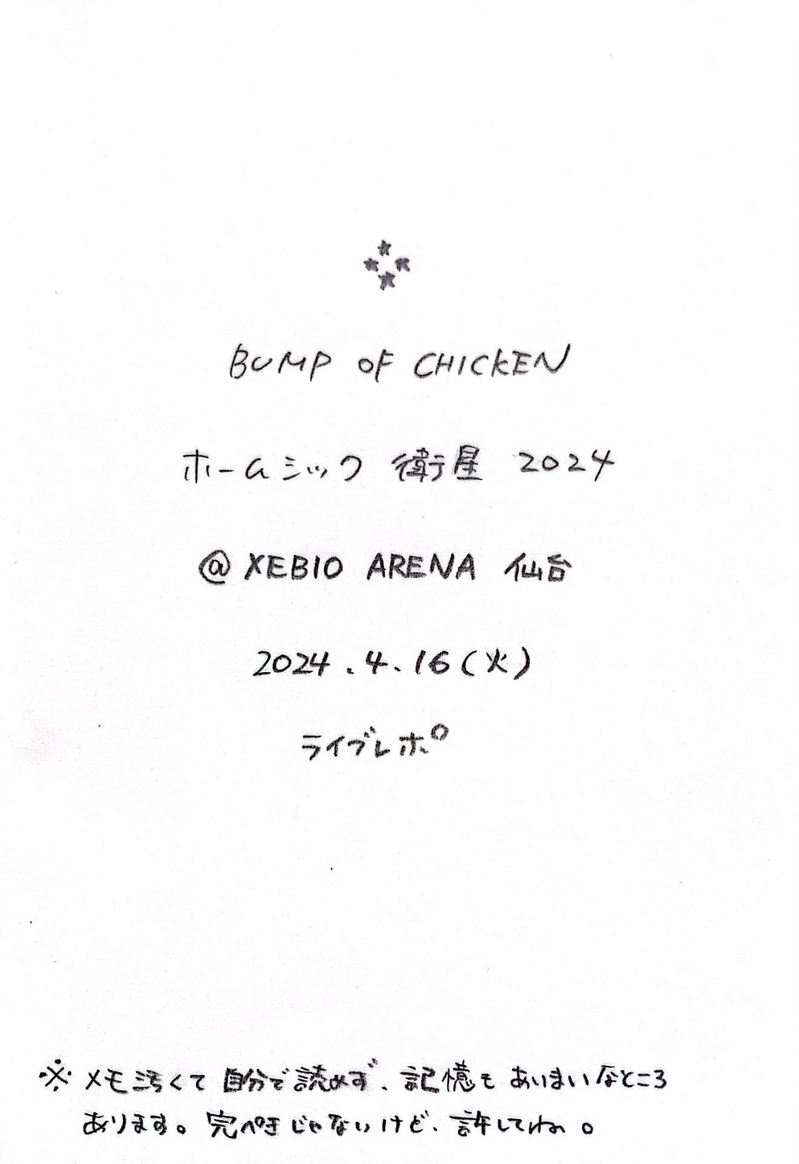 BUMP OF CHICKEN
ホームシック 衛星 2024
@ XEBIO ARENA 仙台
2024.4.16(火)
ライブレポ
※ メモ汚くて自分で読めず、記憶もあいまいなところ
あります。完ぺきじゃないけど、許してね。